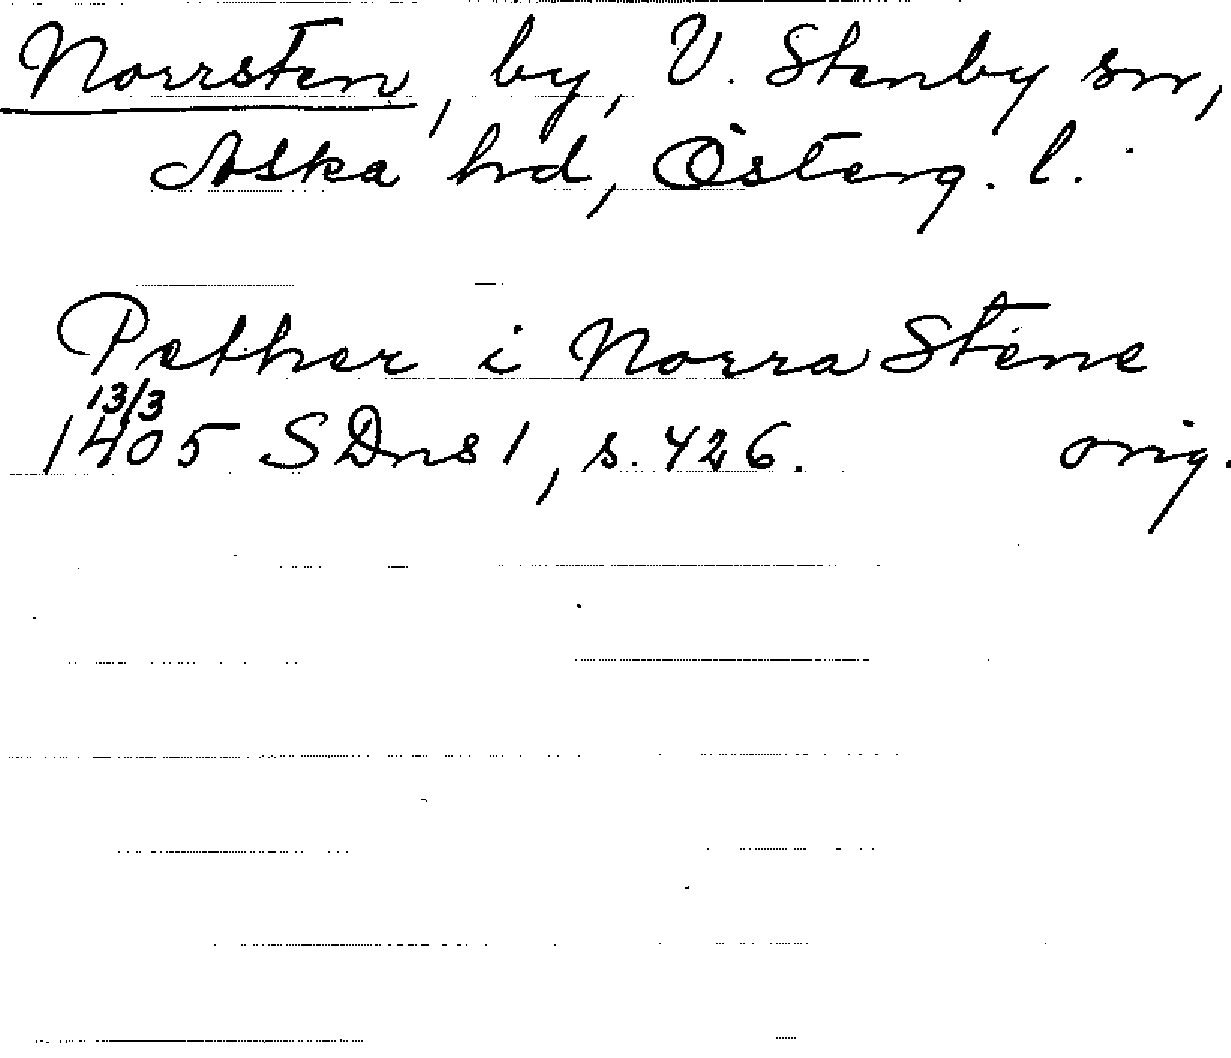 Norrsten, by, V. Stenby sn,
Aska hd, Österg. l.
Pether i Norra Stene
13/3
1405 SDns 1, s. 426. orig.